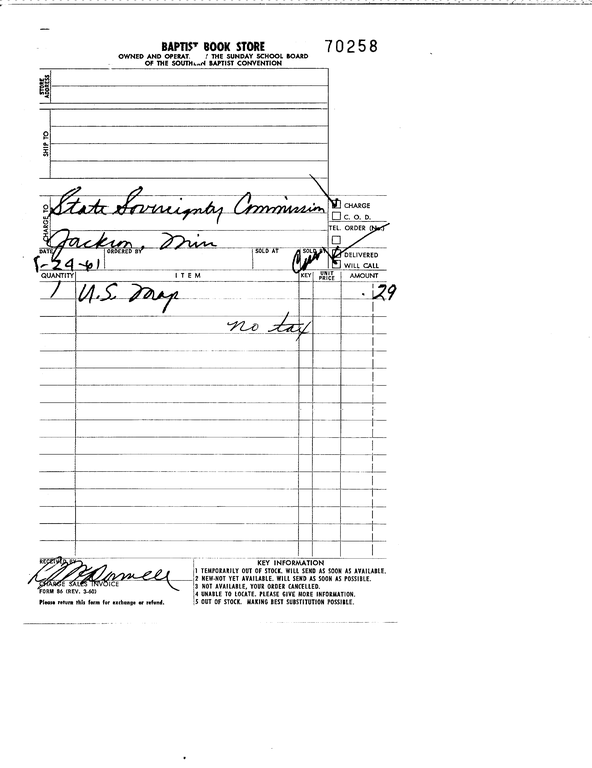 BAPTIST BOOK STORE
70258
OWNED AND OPERAT. THE SUNDAY SCHOOL BOARD
OF THE SOUTHERN BAPTIST CONVENTION
STORE ADDRESS
SHIP TO
CHARGE TO
State Sovereignty Commission
Jackson, Miss
CHARGE
C. O. D.
TEL. ORDER (No.)
DELIVERED
WILL CALL
DATE ORDERED BY SOLD AT SOLD BY
-29-61
QUANTITY ITEM KEY UNIT PRICE AMOUNT
1 U.S. Map .29
no tax
RECEIVED BY
McDonnell
CHARGE SALES INVOICE
FORM 86 (REV. 3-60)
Please return this form for exchange or refund.
KEY INFORMATION
1 TEMPORARILY OUT OF STOCK. WILL SEND AS SOON AS AVAILABLE.
2 NEW-NOT YET AVAILABLE. WILL SEND AS SOON AS POSSIBLE.
3 NOT AVAILABLE, YOUR ORDER CANCELLED.
4 UNABLE TO LOCATE. PLEASE GIVE MORE INFORMATION.
5 OUT OF STOCK. MAKING BEST SUBSTITUTION POSSIBLE.